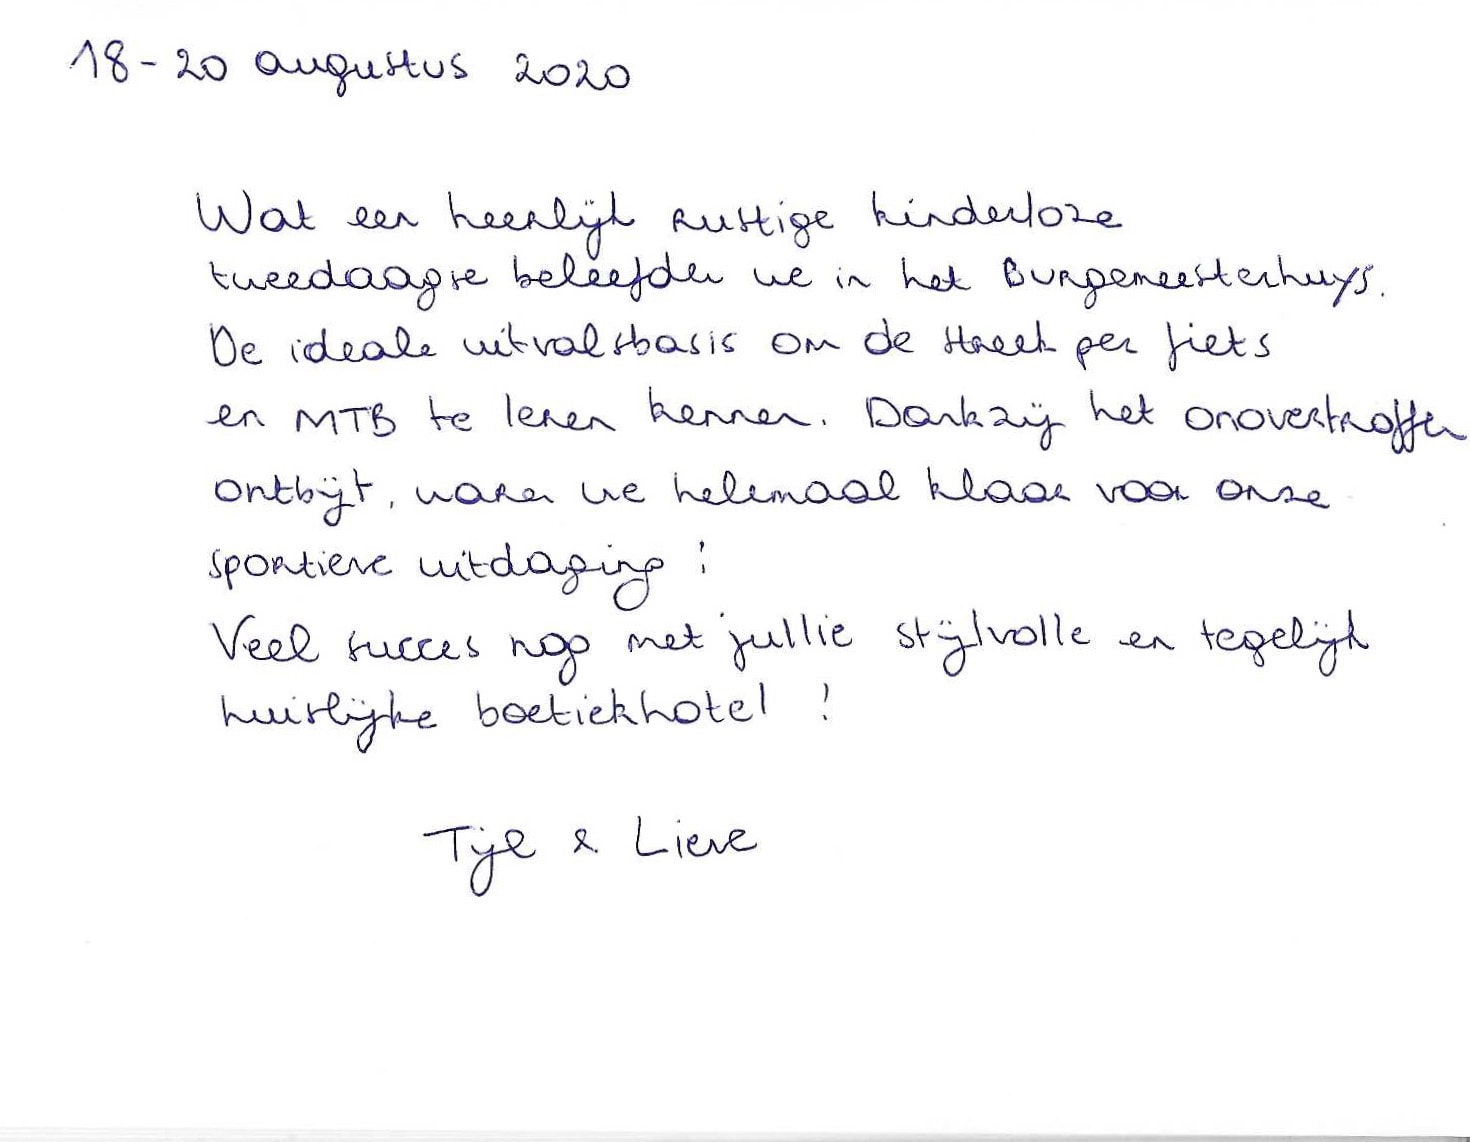 18-20 augustus 2020
Wat een heerlijk rustige kinderloze
tweedaagse beleefden we in het Burgemeesterhuys.
De ideale uitvalsbasis om de streek per fiets
en MTB te leren kennen. Dankzij het onovertroffen
ontbijt, waren we helemaal klaar voor onze
sportieve uitdaging!
Veel succes nog met jullie stijlvolle en tegelijk
huislijke boetiekhotel!
Tijl & Lieve